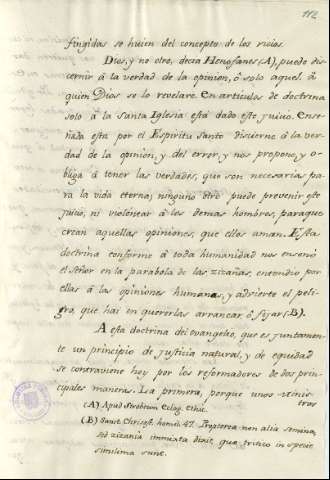 112
fingidas se huien del concepto de los vicios.
Dios, y no otro, decia Henofanes (A), puede dis-
cernir á la verdad de la opinion, ó solo aquel, á
quien Dios se lo revelare. En articulos de doctrina
solo á la Santa Iglesia está dado este juicio. Ense-
ñada esta por el Espiritu Santo discierne á la ver-
dad de la opinion, y del error, y nos propone, y o-
bliga á tener las verdades, que son necesarias pa-
ra la vida eterna; ninguno otro puede prevenir este
juicio, ni violentar á los demas hombres, paraque
crean aquellas opiniones, que ellos aman. Esta
doctrina conforme á toda humanidad nos enseñó
el Señor en la parabola de las zizañas, entendio por
ellas á las opiniones humanas, y advierte el peli-
gro, que hai en quererlas arrancar, ó fijar (B).
A esta doctrina del evangelio, que es juntamen-
te un principio de justicia natural, y de equidad
se contraviene hoy por los reformadores de dos prin-
cipales maneras. La primera, porque unos minis-
tros
(A) Apud Strobeum Eclog. Ethic.
(B) Sanct. Chrisost. homil. 47. Propterea non alia semina,
sed zizania inmixta dixit, quæ tritico in specie
simillima sunt.